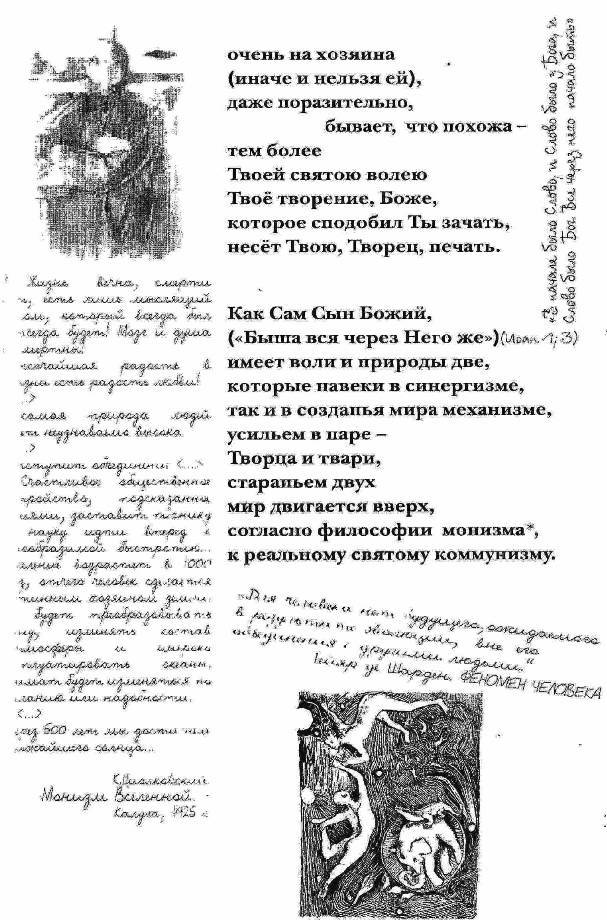 очень на хозяина
(иначе и нельзя ей),
даже поразительно,
бывает, что похожа –
тем более
Твоей святою волею
Твоё творение, Боже,
которое сподобил Ты зачать,
несёт Твою, Творец, печать.
Как Сам Сын Божий,
(«Быша вся через Него же») (Иоан. 1; 3)
имеет воли и природы две,
которые навеки в синергизме,
так и в созданья мира механизме,
усильем в паре –
Творца и твари,
стараньем двух
мир двигается вверх,
согласно философии монизма*,
к реальному святому коммунизму.
«В начале было Слово, и Слово было у Бога, и
Слово было Бог. Все через него начало быть»
Жизнь вечна, смерти
есть лишь мыслящий
который всегда был
всегда будет! Мозг и душа
радость в
есть радость любви!
самая природа людей
неузнаваемо высока
<...>
Счастливое общественное
подсказанное
заставит технику
науку идти вперед с
быстротою...
возрастет в 1000
отчего человек сделается
хозяином земли.
будет преобразовывать
изменять состав
и широко
эксплуатировать океаны.
будет изменяться по
желанию или надобности.
<...>
600 лет мы достигнем
солнца...
К. Циолковский
Монизм Вселенной.
Калуга, 1925 г.
"Для человека нет будущего, ожидаемого
в результате эволюции, вне его
объединения с другими людьми."
Тейяр де Шарден. ФЕНОМЕН ЧЕЛОВЕКА